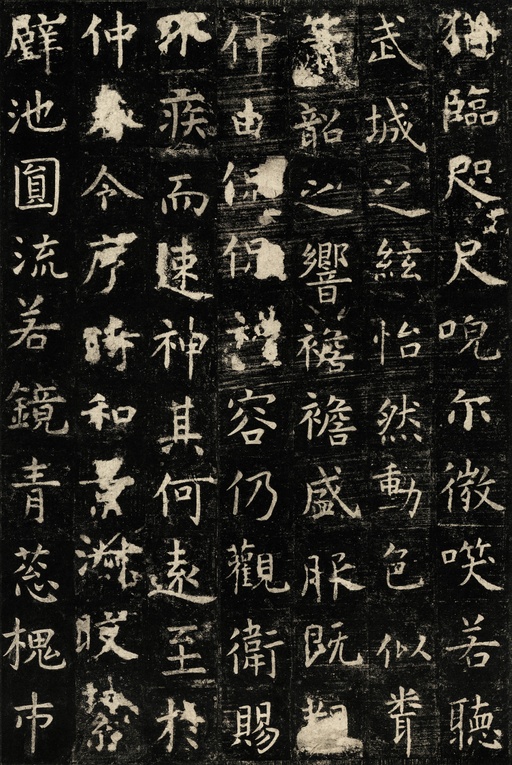 猶臨咫尺唍尔微咲若聽
武城之絃怡然動色似
簫韶之響襜襜盛服既
仲由侃侃禮容仍觀衛賜
不疾而速神其何遠至於
仲春令序時和景淑晈
璧池圓流若鏡青葱槐市